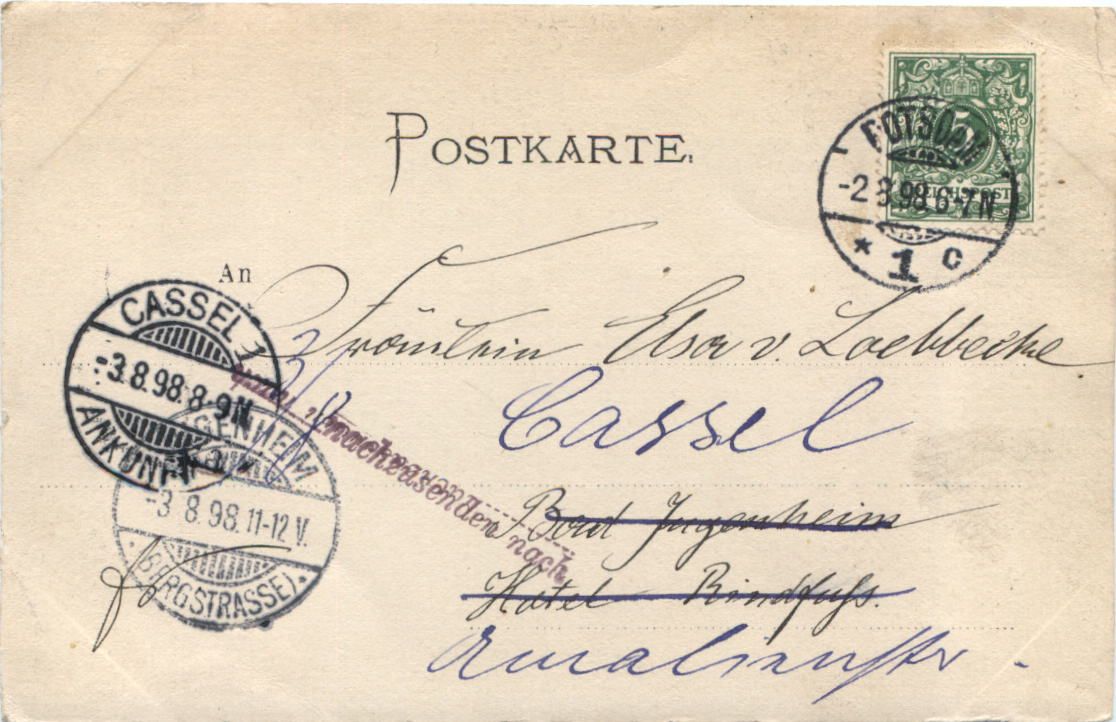 POSTKARTE.
5
REICHSPOST
POTSDAM
-2 8.98.6-7N
* 1 c
An
Fräulein Elsa v. Loebbecke
CASSEL 1
-3.8.98.8-9N
ANKUNFT
Cassel
nachzusenden nach
Bad Jugenheim
JUGENHEIM
-3 8.98.11-12V.
(BERGSTRASSE).
Hotel Rindfuss.
Amalienstr.